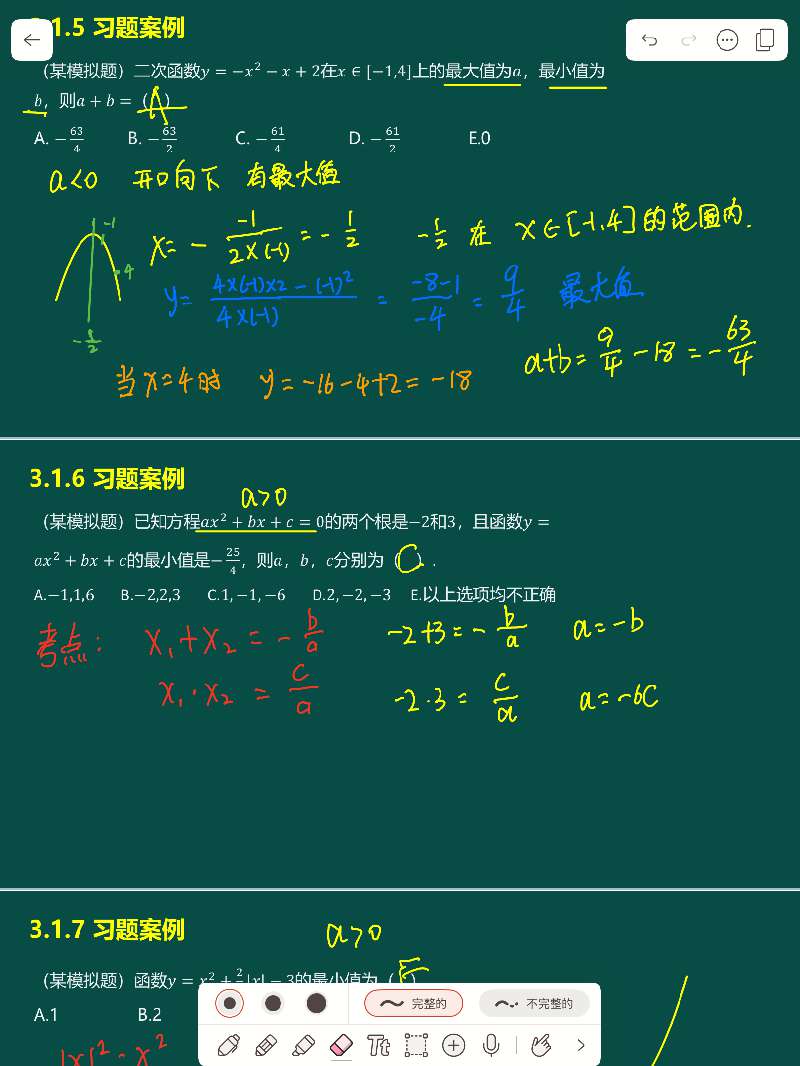 3.1.5 习题案例
（某模拟题）二次函数y = −x² − x + 2在x ∈ [−1,4]上的最大值为a，最小值为
b，则a + b =（A）
A. −63/4 B. −63/2 C. −61/4 D. −61/2 E.0
a<0 开口向下 有最大值
-1
4
-1/2
x = - -1/2×(-1) = - 1/2 -1/2 在 x∈[-1,4]的范围内.
y = 4×(-1)×2-(-1)²/4×(-1) = -8-1/-4 = 9/4 最大值
a+b = 9/4 - 18 = - 63/4
当x=4时 y=-16-4+2=-18
3.1.6 习题案例
a>0
（某模拟题）已知方程ax² + bx + c = 0的两个根是−2和3，且函数y =
ax² + bx + c的最小值是−25/4，则a，b，c分别为（C）.
A.−1,1,6 B.−2,2,3 C.1,−1,−6 D.2,−2,−3 E.以上选项均不正确
考点: x₁+x₂ = - b/a -2+3 = - b/a a=-b
x₁·x₂ = c/a -2·3 = c/a a=-6c
3.1.7 习题案例
a>0
（某模拟题）函数y = x² + 2|x| − 3的最小值为（E）
A.1 B.2
完整的 不完整的
Tt
|x|² = x²